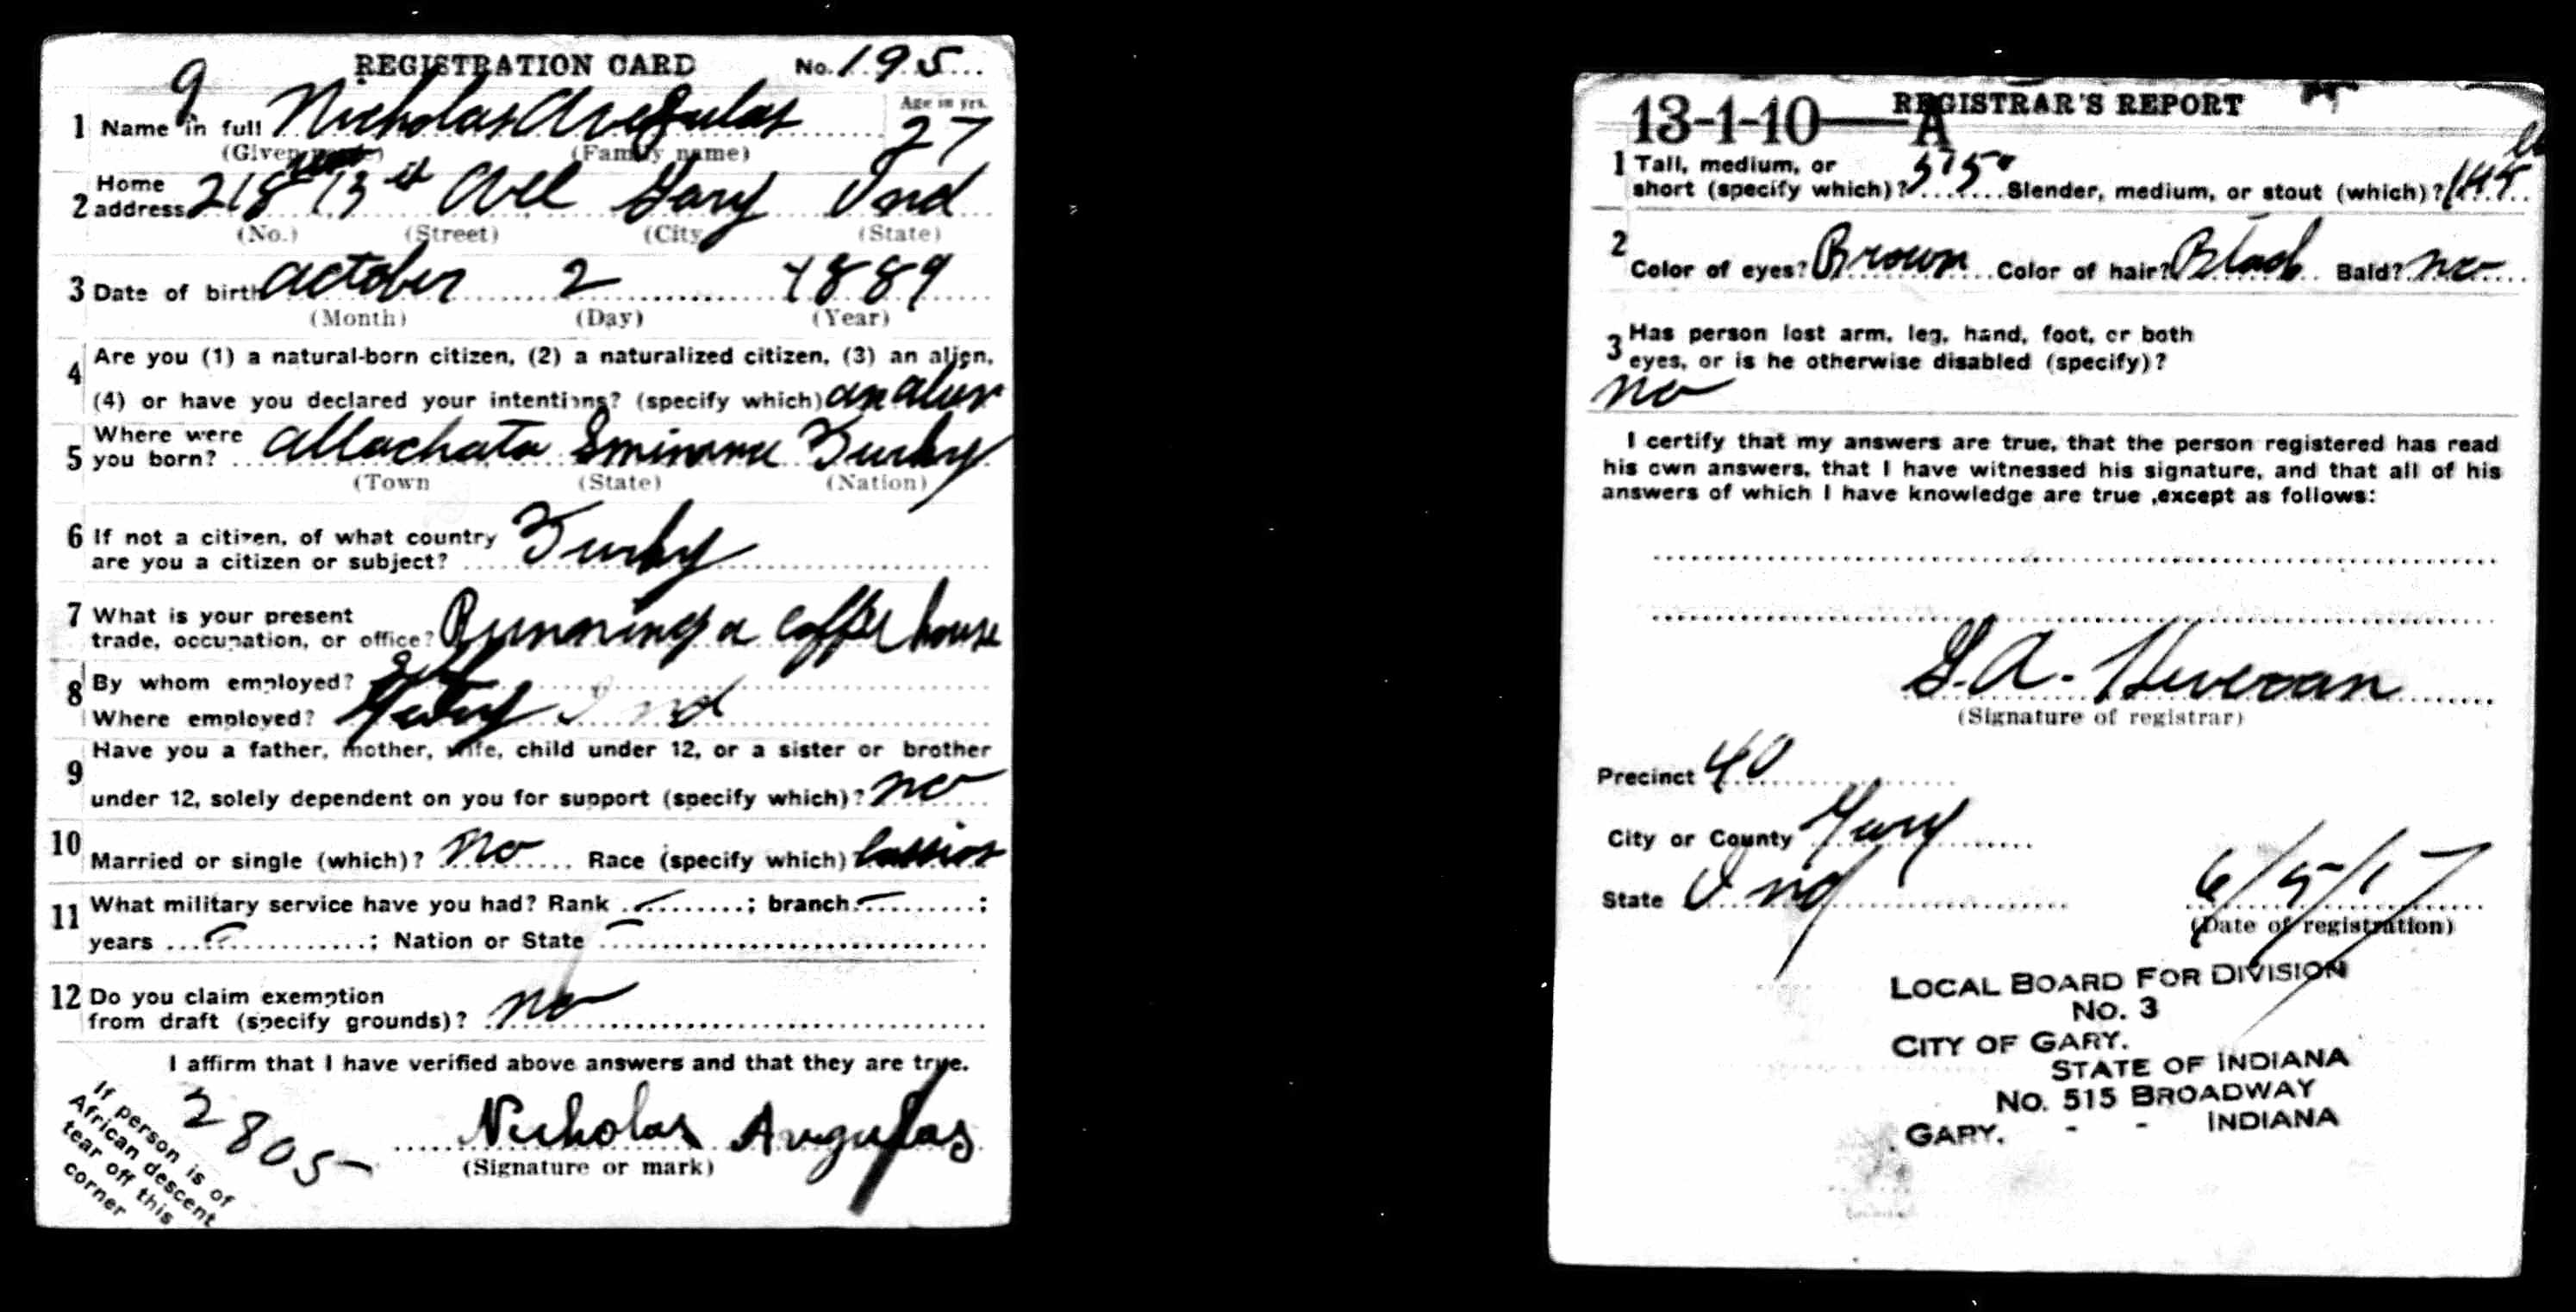 REGISTRATION CARD No. 195
9
1 Name in full Nicholas Avegulas Age in yrs. 27
(Given name) (Family name)
2 Home address 218 13 Ave Gary Ind
(No.) (Street) (City (State)
3 Date of birth October 2 1889
(Month) (Day) (Year)
4 Are you (1) a natural-born citizen, (2) a naturalized citizen, (3) an alien,
(4) or have you declared your intentions? (specify which) an alien
5 Where were you born? allachata Turkey
(Town (State) (Nation)
6 If not a citizen, of what country
are you a citizen or subject? Turkey
7 What is your present
trade, occupation, or office? Running a coffee house
8 By whom employed?
Where employed? Gary Ind
9 Have you a father, mother, wife, child under 12, or a sister or brother
under 12, solely dependent on you for support (specify which)? no
10 Married or single (which)? No Race (specify which)
11 What military service have you had? Rank –; branch –;
years –; Nation or State –
12 Do you claim exemption
from draft (specify grounds)? no
I affirm that I have verified above answers and that they are true.
2805
Nicholas Avgulas
(Signature or mark)
If person is of
African descent
tear off this
corner
13-1-10—A REGISTRAR'S REPORT
1 Tall, medium, or
short (specify which)? Slender, medium, or stout (which)? 145
2 Color of eyes? Brown Color of hair? Black Bald? no
3 Has person lost arm, leg, hand, foot, or both
eyes, or is he otherwise disabled (specify)?
no
I certify that my answers are true, that the person registered has read
his own answers, that I have witnessed his signature, and that all of his
answers of which I have knowledge are true ,except as follows:
(Signature of registrar)
Precinct 40
City or County Gary
State Ind 6/5/17
(Date of registration)
LOCAL BOARD FOR DIVISION
No. 3
CITY OF GARY.
STATE OF INDIANA
No. 515 BROADWAY
GARY, - - INDIANA